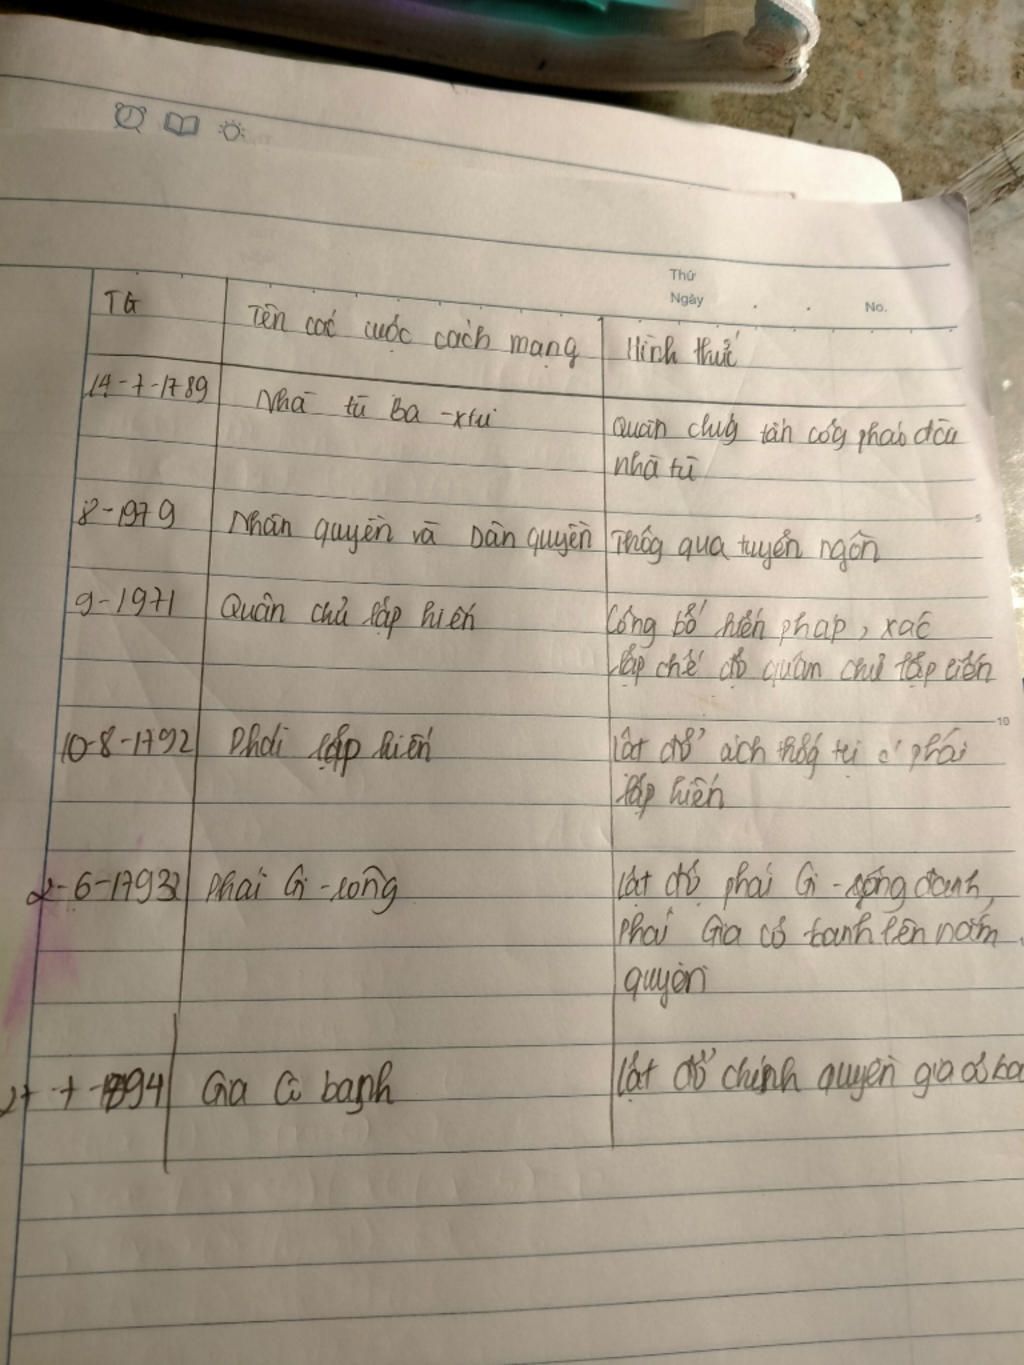 Thứ
Ngày . . No.
TG Tên các cuộc cách mạng Hình thức
14-7-1789 Nhà tù Ba-xti Quần chúg tấn côg pháo đài
nhà tù
5
8-1979 Nhân quyền và Dân quyền Thôg qua tuyên ngôn
9-1971 Quân chủ lập hiến Công bố hiến pháp, xác
lập chế độ quân chủ lập hiến
10
10-8-1792 Phái lập hiến Lật đổ ách thốg trị phái
lập hiến
2-6-1793 Phái Gi-rông Lật đổ phái Gi-rông đanh,
Phái Gia cô banh lên nắm
quyền
27-7-1794 Gia Cô banh Lật đổ chính quyền gia cô ba